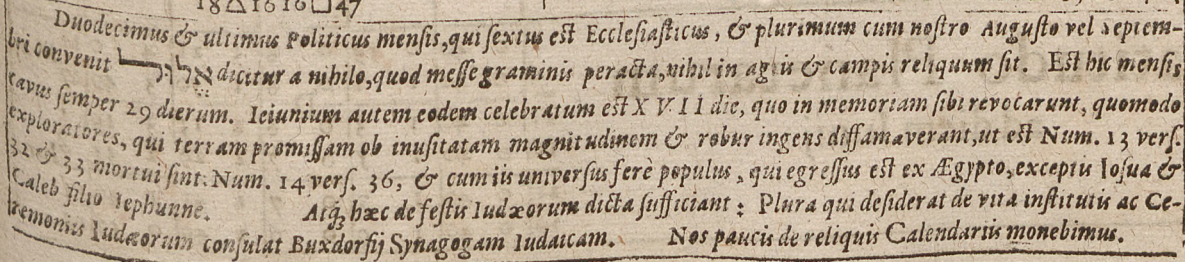 18△1616□47
Duodecimus & ultimus Politicus mensis, qui sextus est Ecclesiasticus, & plurimum cum nostro Augusto vel Septem-
bri convenit אֱלוּל dicitur a nihilo, quod messe graminis peracta, nihil in agris & campis reliquum sit. Est hic mensis
cavus semper 29 dierum. Ieiunium autem eodem celebratum est XVII die, quo in memoriam sibi revocarunt, quomodo
exploratores, qui terram promissam ob inusitatam magnitudinem & robur ingens diffamaverant, ut est Num. 13 vers.
32 & 33 mortui sint. Num. 14 vers. 36, & cum iis universus ferè populus, qui egressus est ex Ægypto, exceptis Iosua &
Caleb filio Iephunne. Atq; hæc de festis Iudæorum dicta sufficiant: Plura qui desiderat de vita institutis ac Ce-
remoniis Iudæorum consulat Buxdorfij Synagogam Iudaicam. Nos paucis de reliquis Calendariis monebimus.